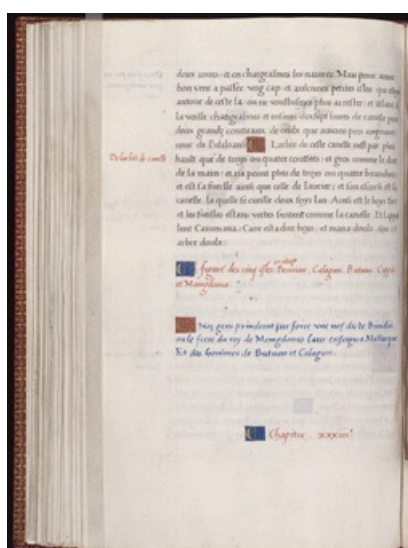 deux jours: et en chargeasmes les navires. Mais pour avoir
bon vent a passer ung cap: et aulcunes petites isles que estoient
autour de ceste la: on ne voulusmes plus arrester: et allant a
la voille changeasmes et eusmes dixsept livres de canelle pour
deux grandz cousteaux de ceulx que avions prins au gouver
neur de Pulaoan. Larbre de ceste canelle nest pas plus
De larbre de canelle
hault que de troys ou quatre couldées: et gros comme le doit
de la main: et n'a point plus de troys ou quatre branches:
et est sa fueille ainsi que celle de laurier: et son escorce est la
canelle, la quelle se cueille deux foys lan. Ainsi est le boys fort
et les fueilles estans vertes sentent comme la canelle. Et lappel
lent Caiumana. Caiu est a dire boys: et mana doulx. Qui est
arbre doulx:
figure des cinq isles Benaian, Calagan, Butuan, Cippit
et Maingdano.
Noz gens prindrent par force une nef dicte
ou le frere du roy de Maingdano leur enseigna Mallucque
Et des hommes de Butuan et Calagan.
Chapitre. xxxiiii.